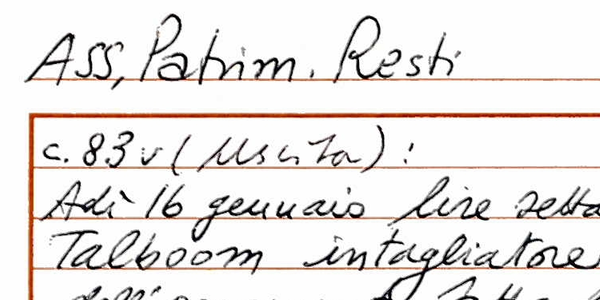 Ass, Patrim. Resti
c. 83 v (Uscita):
Adì 16 gennaio lire setta
Talboom intagliatore